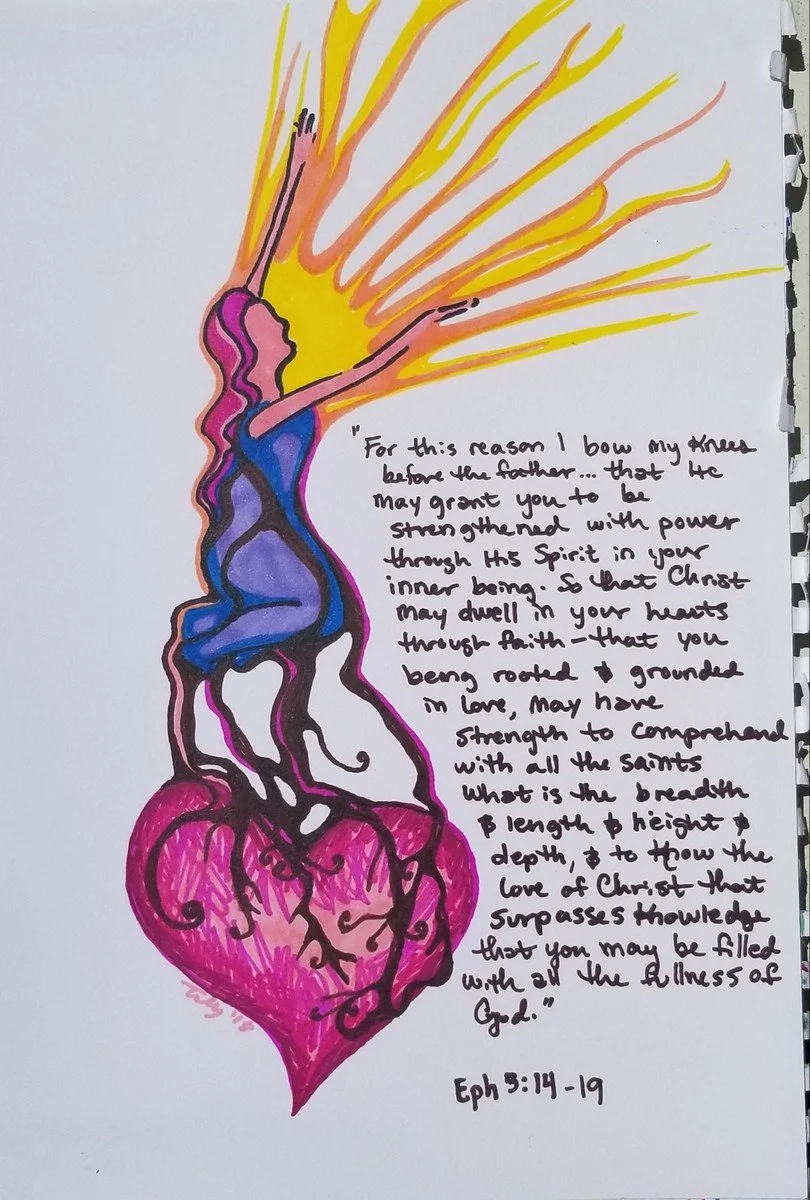 "For this reason I bow my knees
before the father... that He
may grant you to be
strengthened with power
through His Spirit in your
inner being. So that Christ
may dwell in your hearts
through faith - that you
being rooted & grounded
in love, may have
strength to comprehend
with all the saints
what is the breadth
& length & height &
depth, & to know the
love of Christ that
surpasses knowledge
that you may be filled
with all the fullness of
God."
Eph 3:14-19
'18